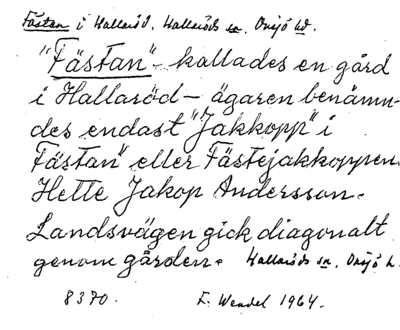 Fästan i Hallaröd. Hallaröds sn. Onsjö hd.
"Fästan" - kallades en gård
i Hallaröd - ägaren benämn-
des endast "Jakkopp" i
Fästan" eller Fästejakkoppen.
Hette Jakop Andersson.
Landsvägen gick diagonalt
genom gården. Hallaröds sn. Onsjö h.
8370. F. Wendel 1964.